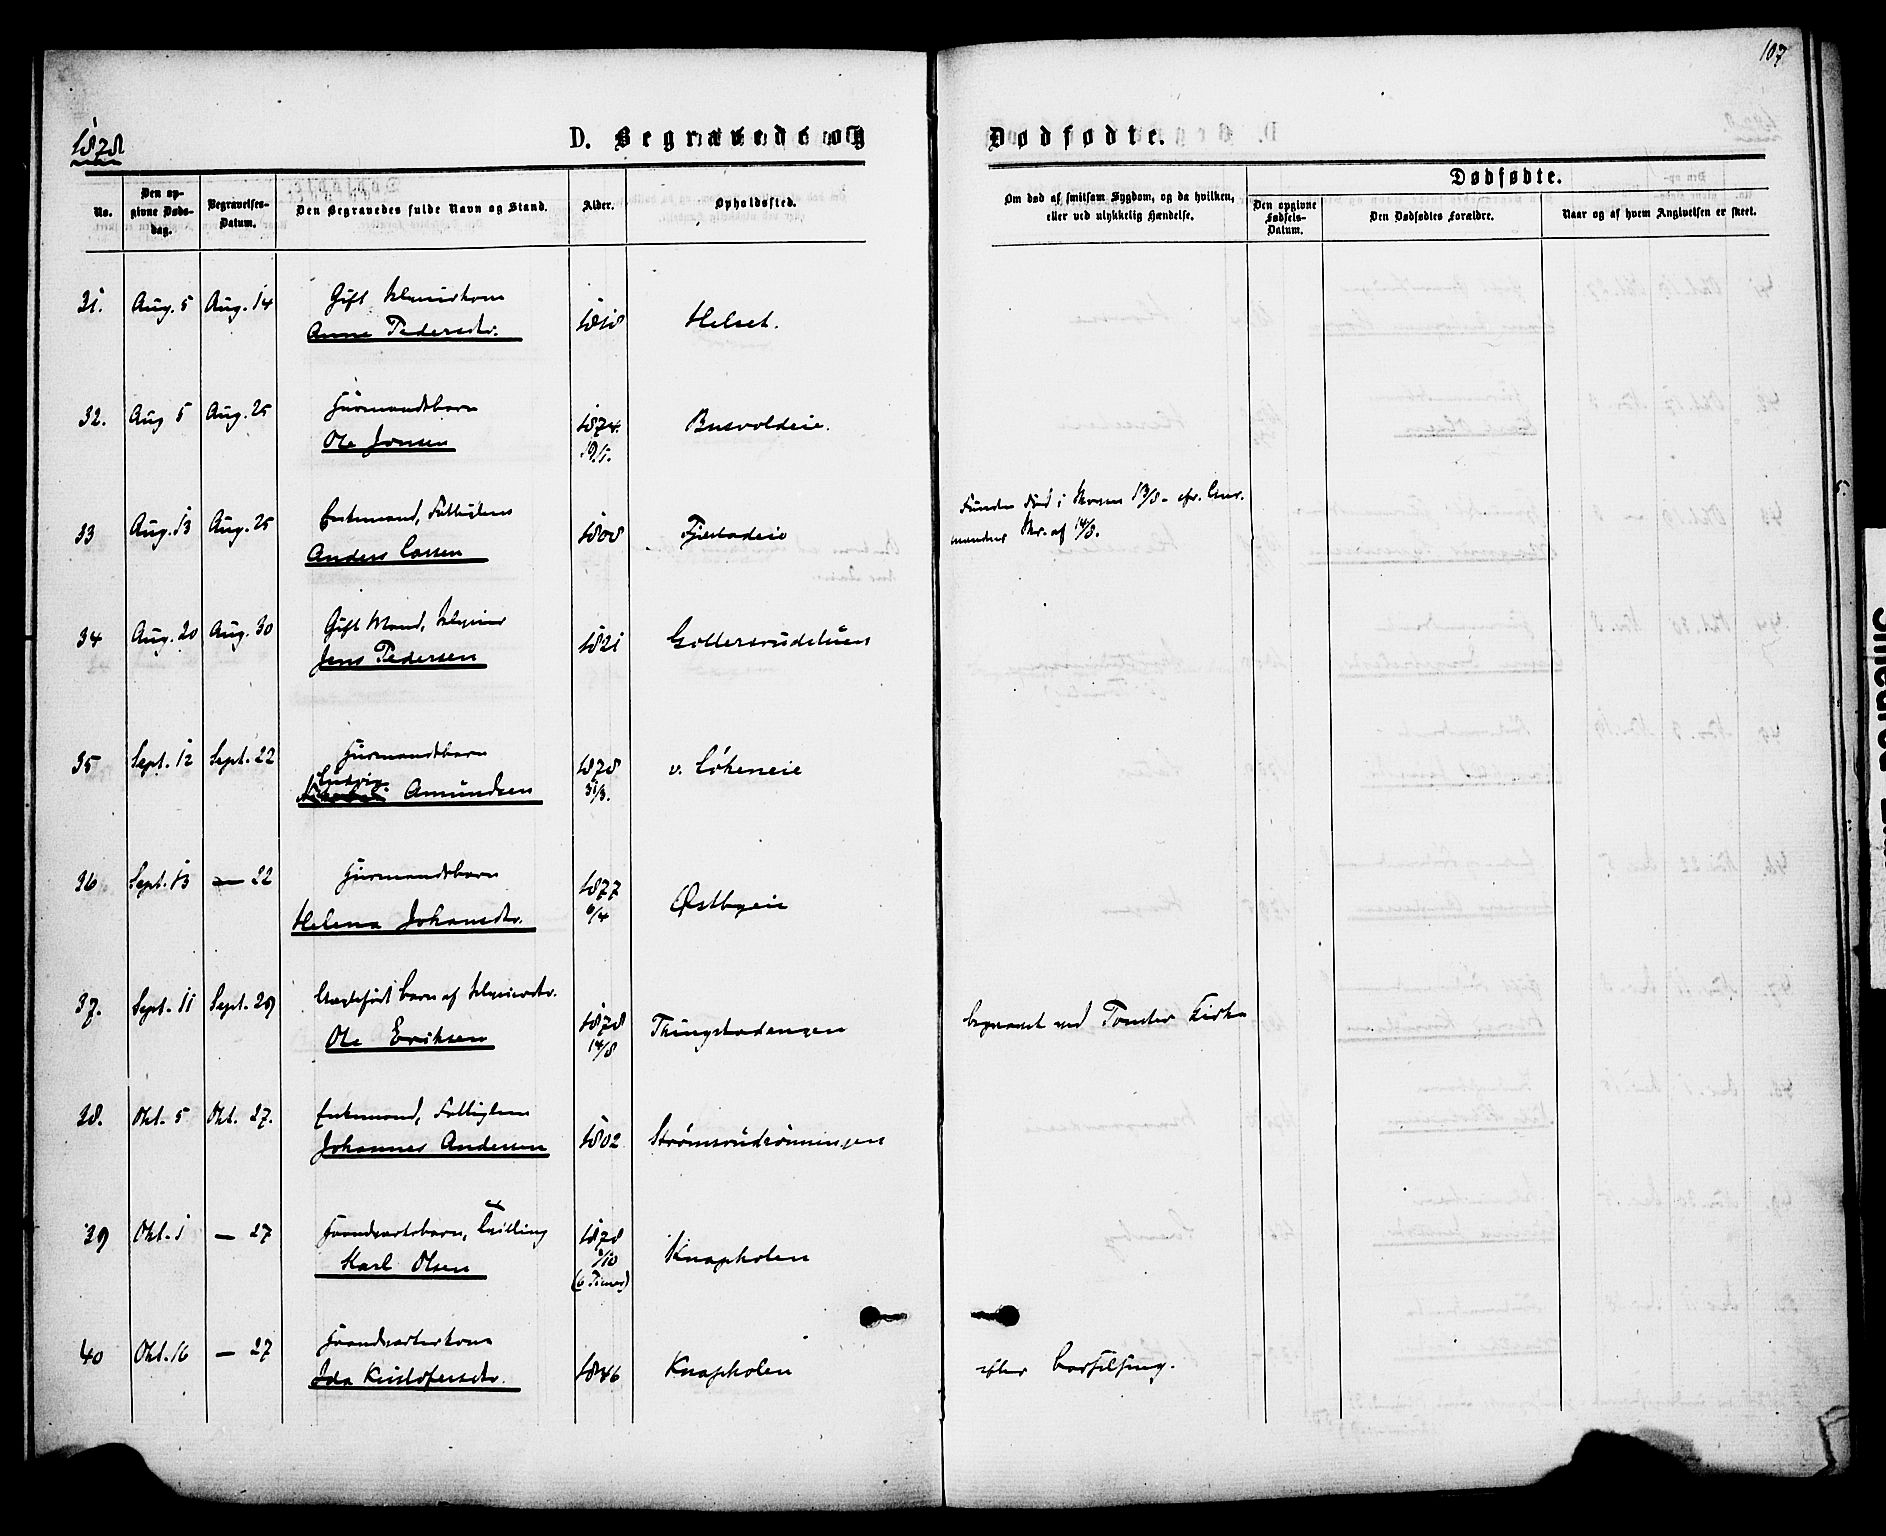 107
1878
D. Begravede og Dødfødte.
No.
Den opgivne Dødsdag.
Begravelses-Datum.
Den Begravedes fulde Navn og Stand.
Alder.
Opholdssted.
Om død af smitsom Sygdom, og da hvilken, eller ved ulykkelig Hændelse.
Dødfødte.
Den opgivne Fødsels-Datum.
Den Dødfødtes Forældre.
Naar og af hvem Angivelsen er skeet.
31. Aug. 5 Aug. 14 Gift
Anne Pedersdtr. 1818 Helset.
32. Aug 5 Aug. 25 Husmandsbarn
Ole Jonsen 1874. Busvoldeie.
33 Aug. 13 Aug. 25 Enkemand, Fattiglem
Anders Larsen 1808 Fjelstadeie Funden død i 13/8
14/8.
34 Aug. 20 Aug. 30 Gift Mand,
Jens Pedersen 1821 Gollersrudstuen
35 Sept. 12 Sept. 22 Husmandsbarn
Ludvig Amundsen 1878 31/3. v. Løkeneie
36 Sept. 13 — 22 Husmandsbarn
Helena Johansdtr. 1877 6/4 Østbyeie
37. Sept. 11 Sept. 29 Uægtefødt barn af
Ole Eriksen 1878 14/8 Thingstadengen begravet ved Tomter Kirke
38. Okt. 5 Okt. 27. Enkemand, Fattiglem
Johannes Andersen 1802 Strømsrudrønningen
39 Okt. 1 — 27 Forpagterbarn, Tvilling
Karl Olsen 1878 1/10 (6 Timer) Knapholen
40 Okt. 16 — 27
Ida Kristofersdtr. 1846 Knapholen efter Barselseng.